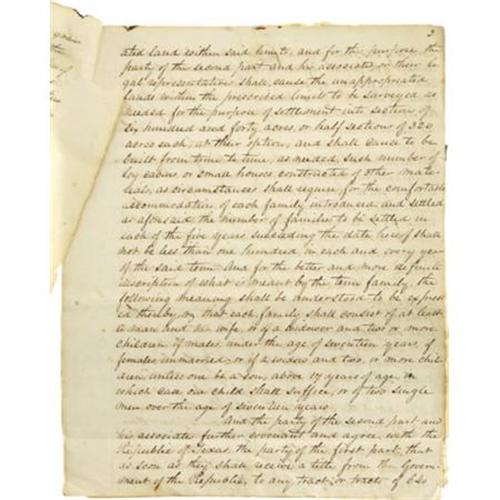 2
ated land within said limits, and for the purpose the
party of the second part and his associates or their le
gal representatives shall cause the unappropriated
lands within the prescribed limits to be surveyed as
needed for the purpose of settlement into sections of
six hundred and forty acres, or half sections of 320
acres each, at their option, and shall cause to be
built from time to time, as needed, such number of
log cabins, or small houses constructed of other mate
rials, as circumstances shall require for the comfortable
accommodation of each family introduced and settled
as aforesaid the number of families to be settled in
each of the five years succeeding the date hereof shall
not be less than one hundred in each and every year
of the said term. And for the better and more definite
description of what is meant by the term family, the
following meaning shall be understood to be express
ed thereby, viz that each family shall consist of at least
a man and his wife, or of a widower and two or more
children if males under the age of seventeen years, if
females unmarried, or of a widow and two, or more chil
dren unless one be a son, above 17 years of age, in
which case one child shall suffice, or of two single
men over the age of seventeen years.
And the party of the second part and
his associates further covenant and agree, with the
Republic of Texas, the party of the first part, that
as soon as they shall receive a title from the Govern
ment of the Republic, to any tract, or tracts of 640